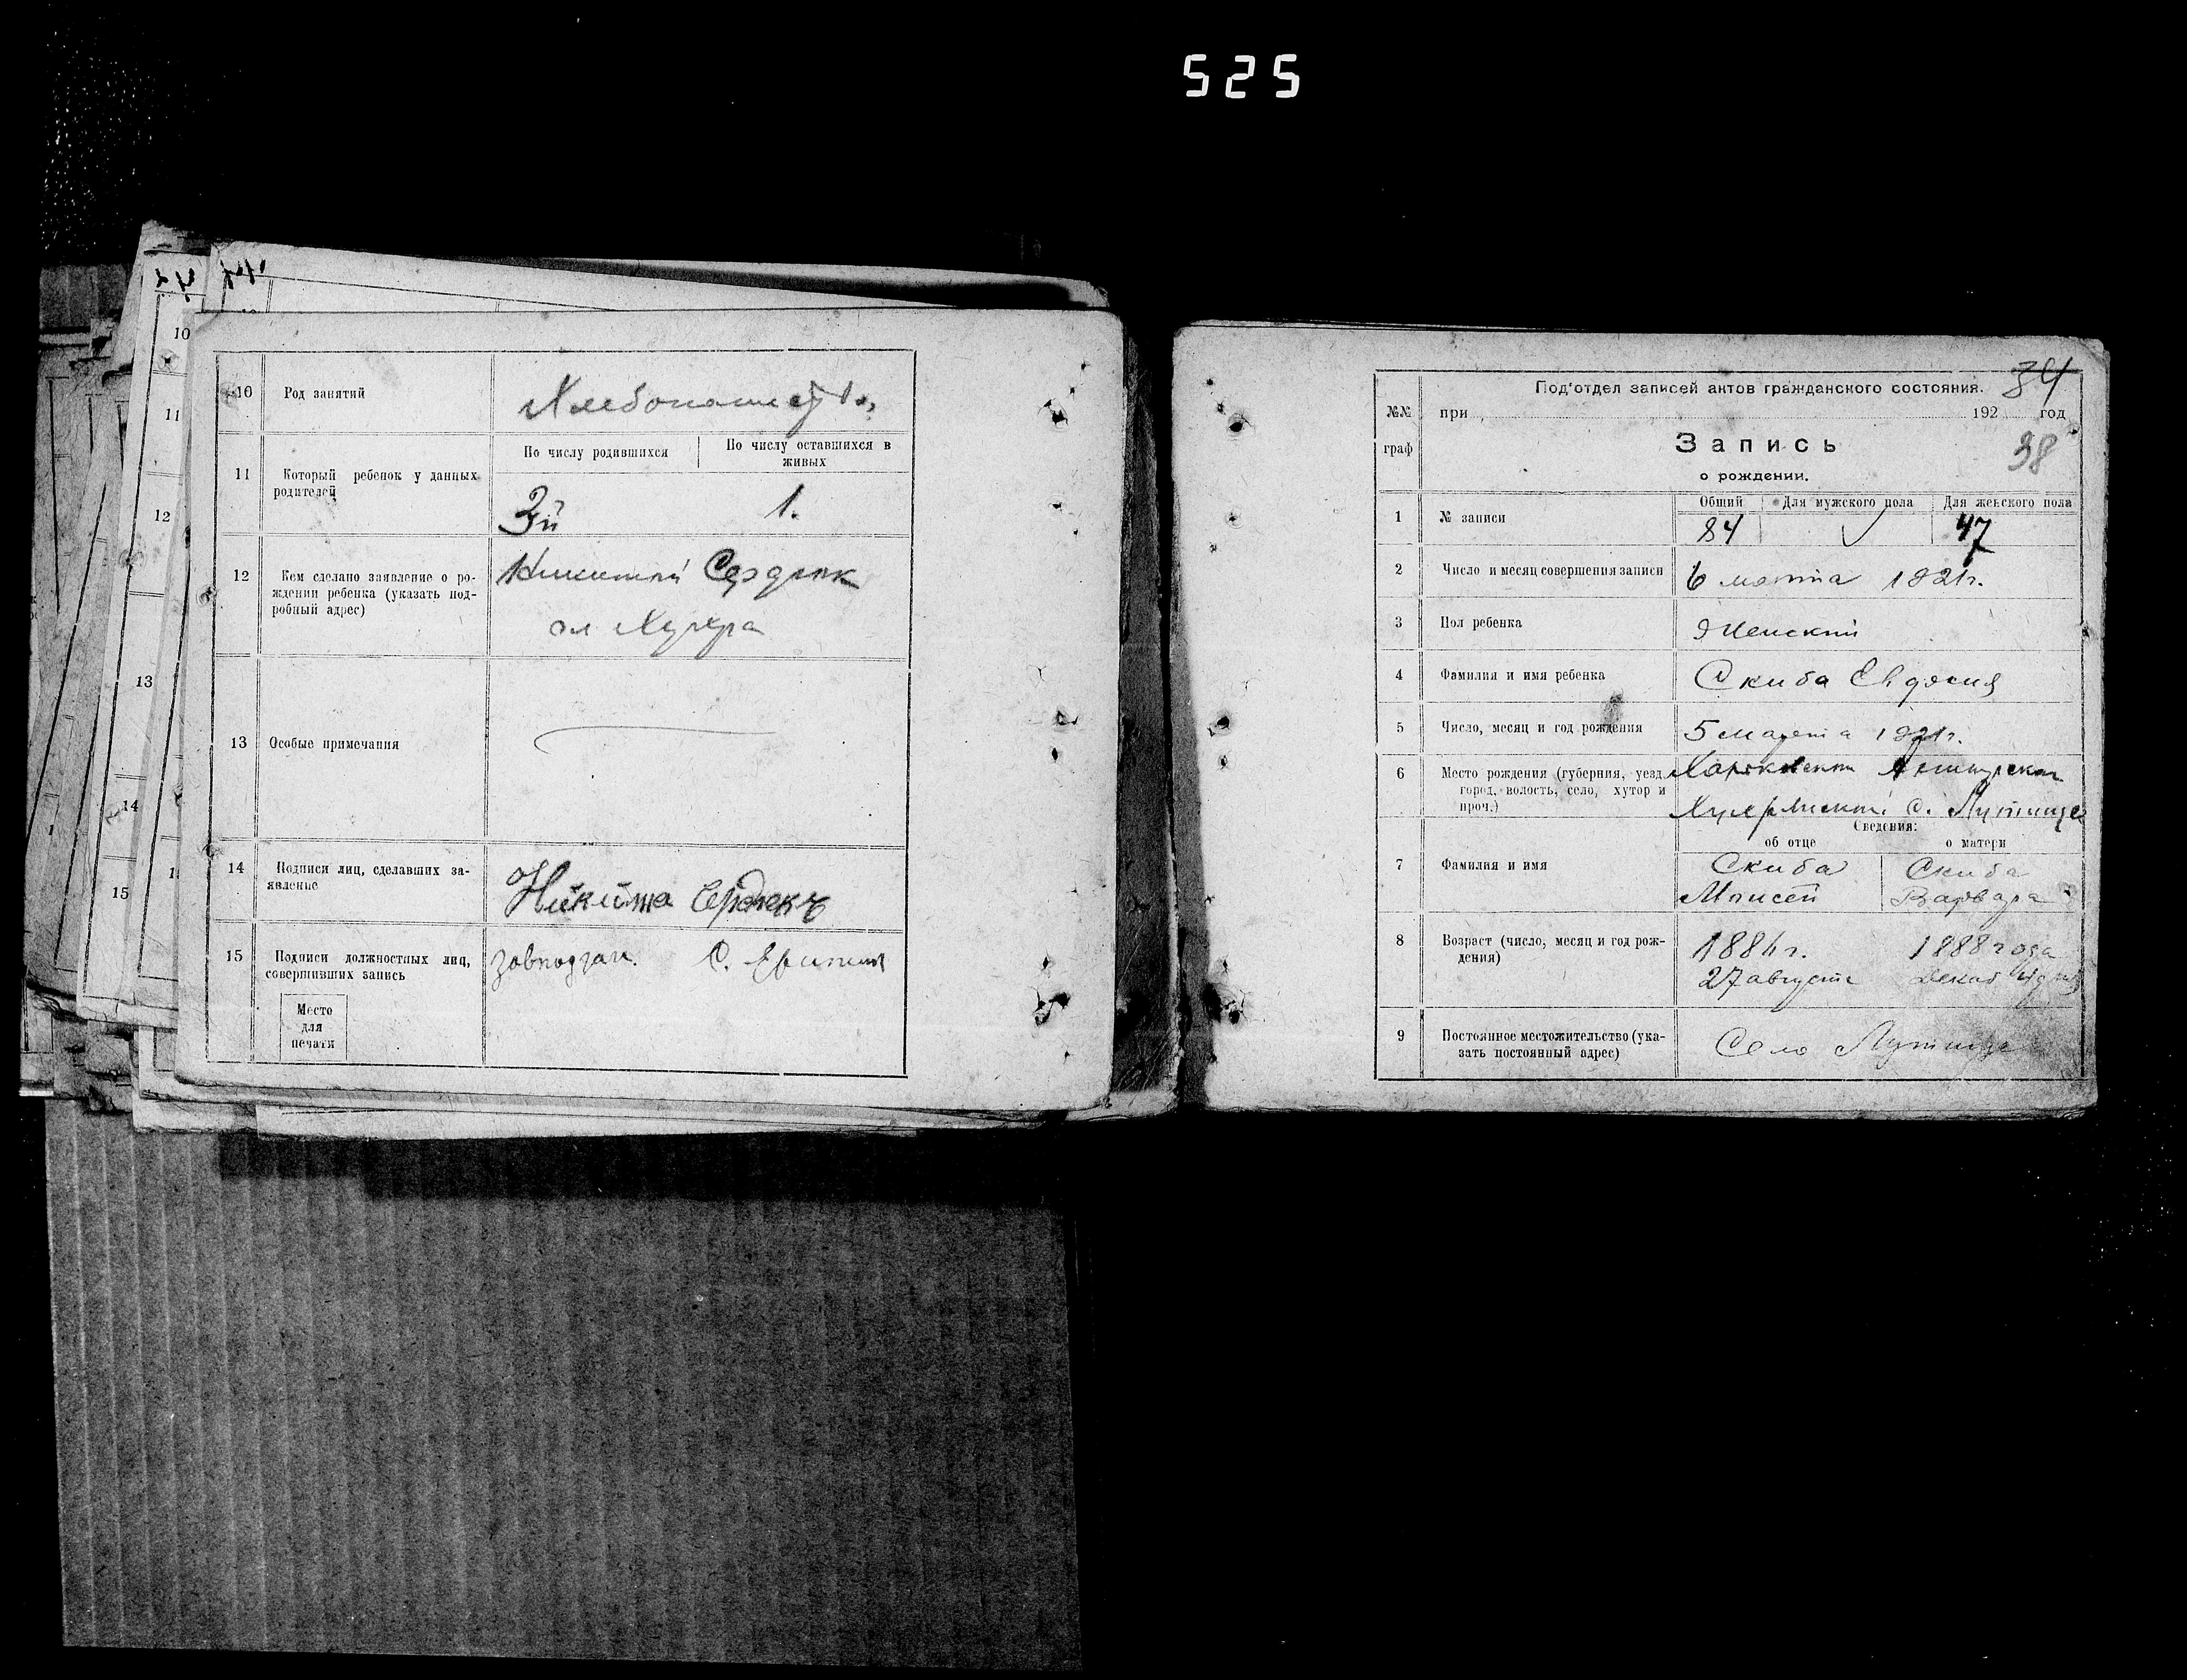 525
10
11
12
13
14
15
10 Род занятий Хлебопашеств.
11 Который ребенок у данных
родителей
По числу родившихся По числу оставшихся в
живых
3й 1.
12 Кем сделано заявление о ро-
ждении ребенка (указать под-
робный адрес)
Никитой Сердюк
сл
13 Особые примечания
14 Подписи лиц, сделавших за-
явление
Никита Сердюкъ
15 Подписи должностных лиц,
совершивших запись
С.
Место
для
печати
34
Под'отдел записей актов гражданского состояния.
№№
граф
при 192 год
Запись
38
о рождении.
1 № записи
Общий Для мужского пола Для женского пола
84 47
2 Число и месяц совершения записи 6 марта 1921г.
3 Пол ребенка Женский
4 Фамилия и имя ребенка Скиба Евдокия
5 Число, месяц и год рождения 5 марта 1921г.
6 Место рождения (губерния, уезд,
город, волость, село, хутор и
проч.)
Харьковской
с. Лутище
Сведения:
об отце о матери
7 Фамилия и имя
Скиба Скиба
Моисей Варвара
8 Возраст (число, месяц и год рож-
дения)
1888 года
27 августа
9 Постоянное местожительство (ука-
зать постоянный адрес)
Село Лутище